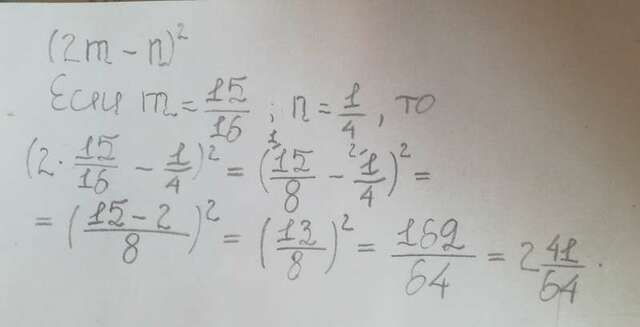 (2m - n)²
Если m = 15/16 ; n = 1/4, то
(2 · 15/16 - 1/4)² = (¹15/8 - ²1/4)² =
= ((15 - 2)/8)² = (13/8)² = 169/64 = 2 41/64.